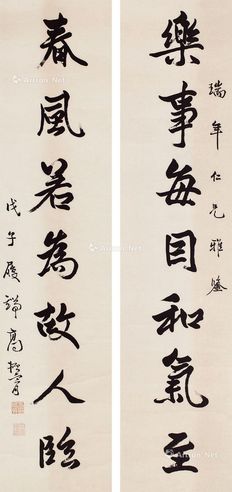 瑞年仁兄雅鑒
樂事每囙和氣至
春風若為故人臨
戊午履端高振霄
Artron.Net